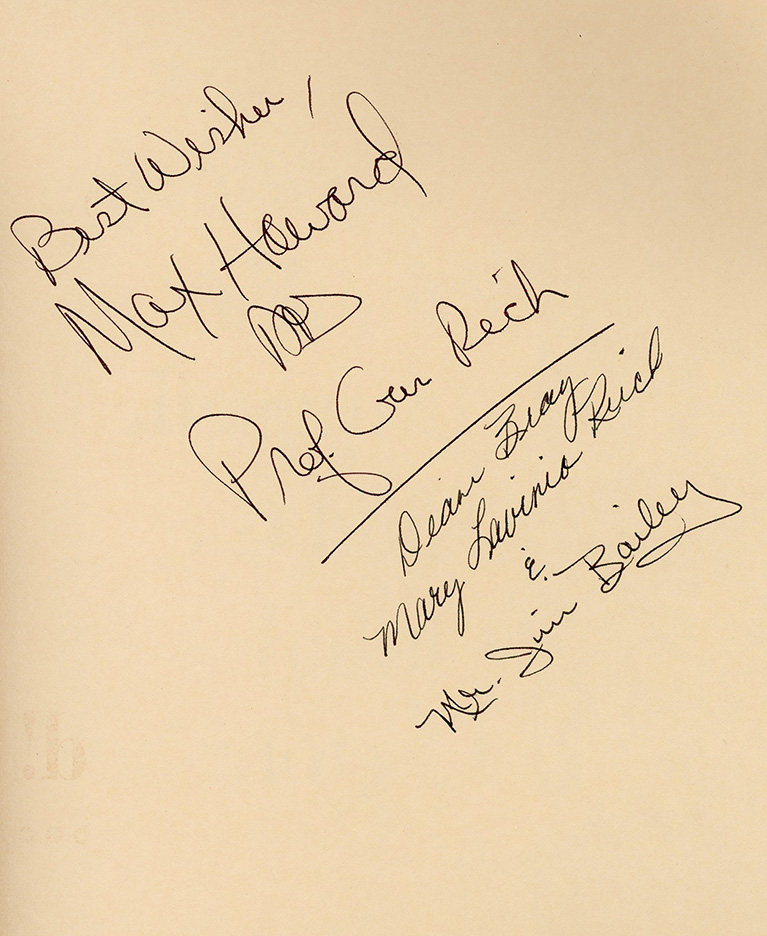 Best Wishes,
Max Howard
Prof. Reich
Diane Bray
Mary Lavinia Reich
&
Mr. Jim Bailey